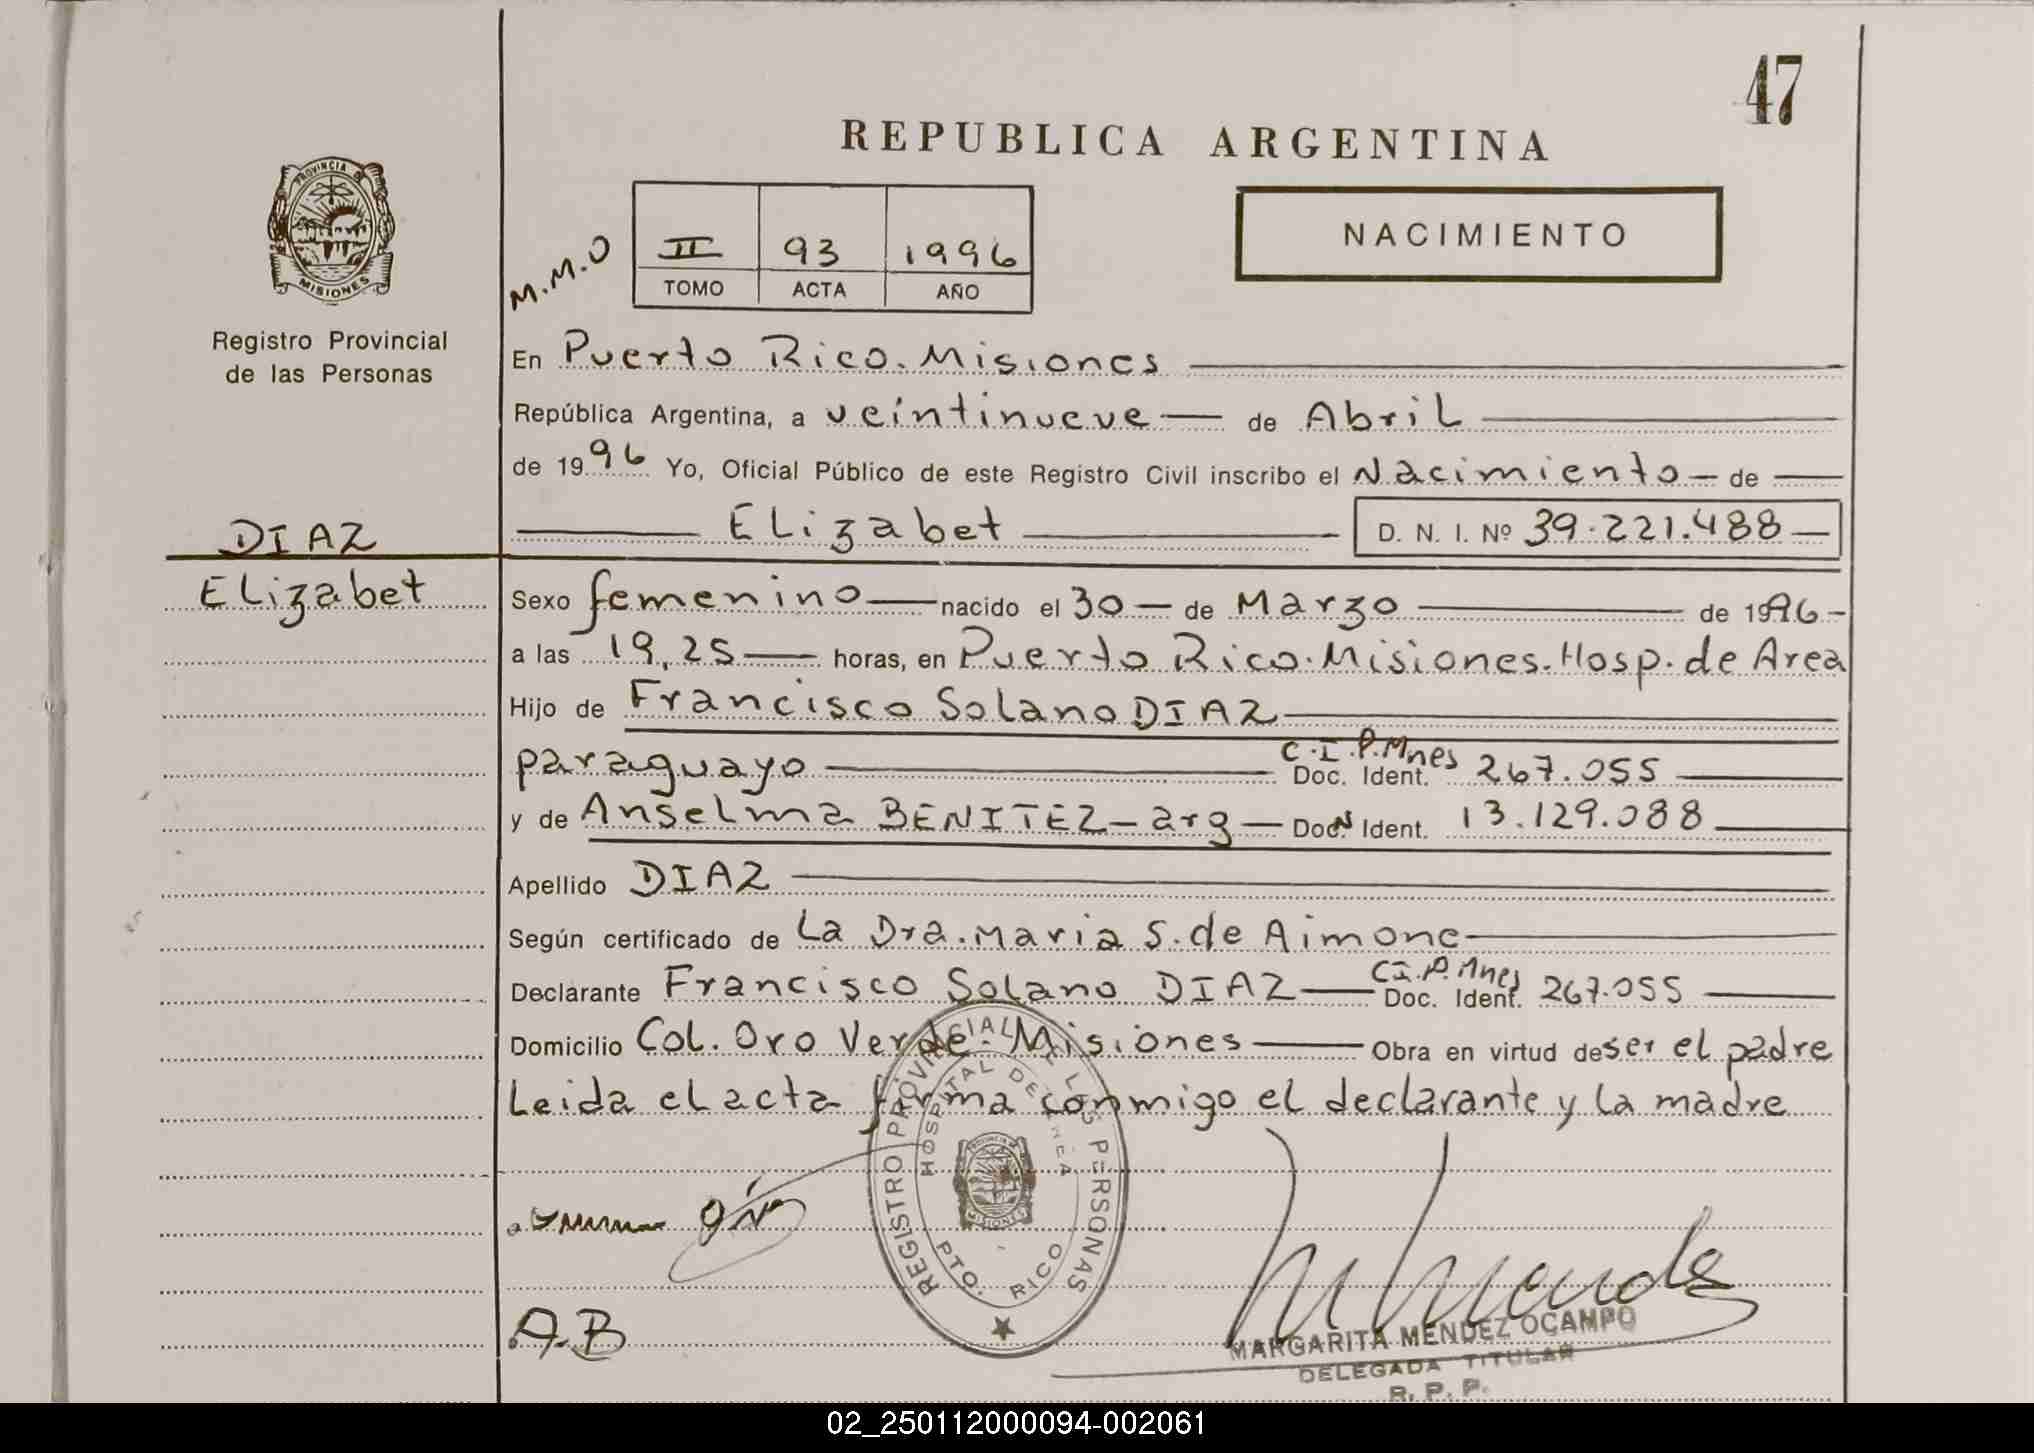 47
REPUBLICA ARGENTINA
PROVINCIA DE
MISIONES
Registro Provincial
de las Personas
M.M.O
II 93 1996
TOMO ACTA AÑO
NACIMIENTO
En Puerto Rico. Misiones
República Argentina, a veintinueve de Abril
de 1996 Yo, Oficial Público de este Registro Civil inscribo el Nacimiento de
Elizabet D. N. I. Nº 39.221.488
DIAZ
Elizabet
Sexo femenino nacido el 30 de Marzo de 1996
a las 19,25 horas, en Puerto Rico. Misiones. Hosp. de Area
Hijo de Francisco Solano DIAZ
paraguayo C.I.P.Mnes Doc. Ident. 267.055
y de Anselma BENITEZ - arg Doc. Ident. 13.129.088
Apellido DIAZ
Según certificado de La Dra. Maria S. de Aimone
Declarante Francisco Solano DIAZ C.I.P.Mnes Doc. Ident. 267.055
Domicilio Col. Oro Verde. Misiones Obra en virtud de ser el padre
Leida el acta firma conmigo el declarante y la madre
REGISTRO PROVINCIAL DE LAS PERSONAS
HOSPITAL DE AREA
PTO. RICO
MISIONES
A.B
MARGARITA MENDEZ OCAMPO
DELEGADA TITULAR
R. P. P.
02_250112000094-002061